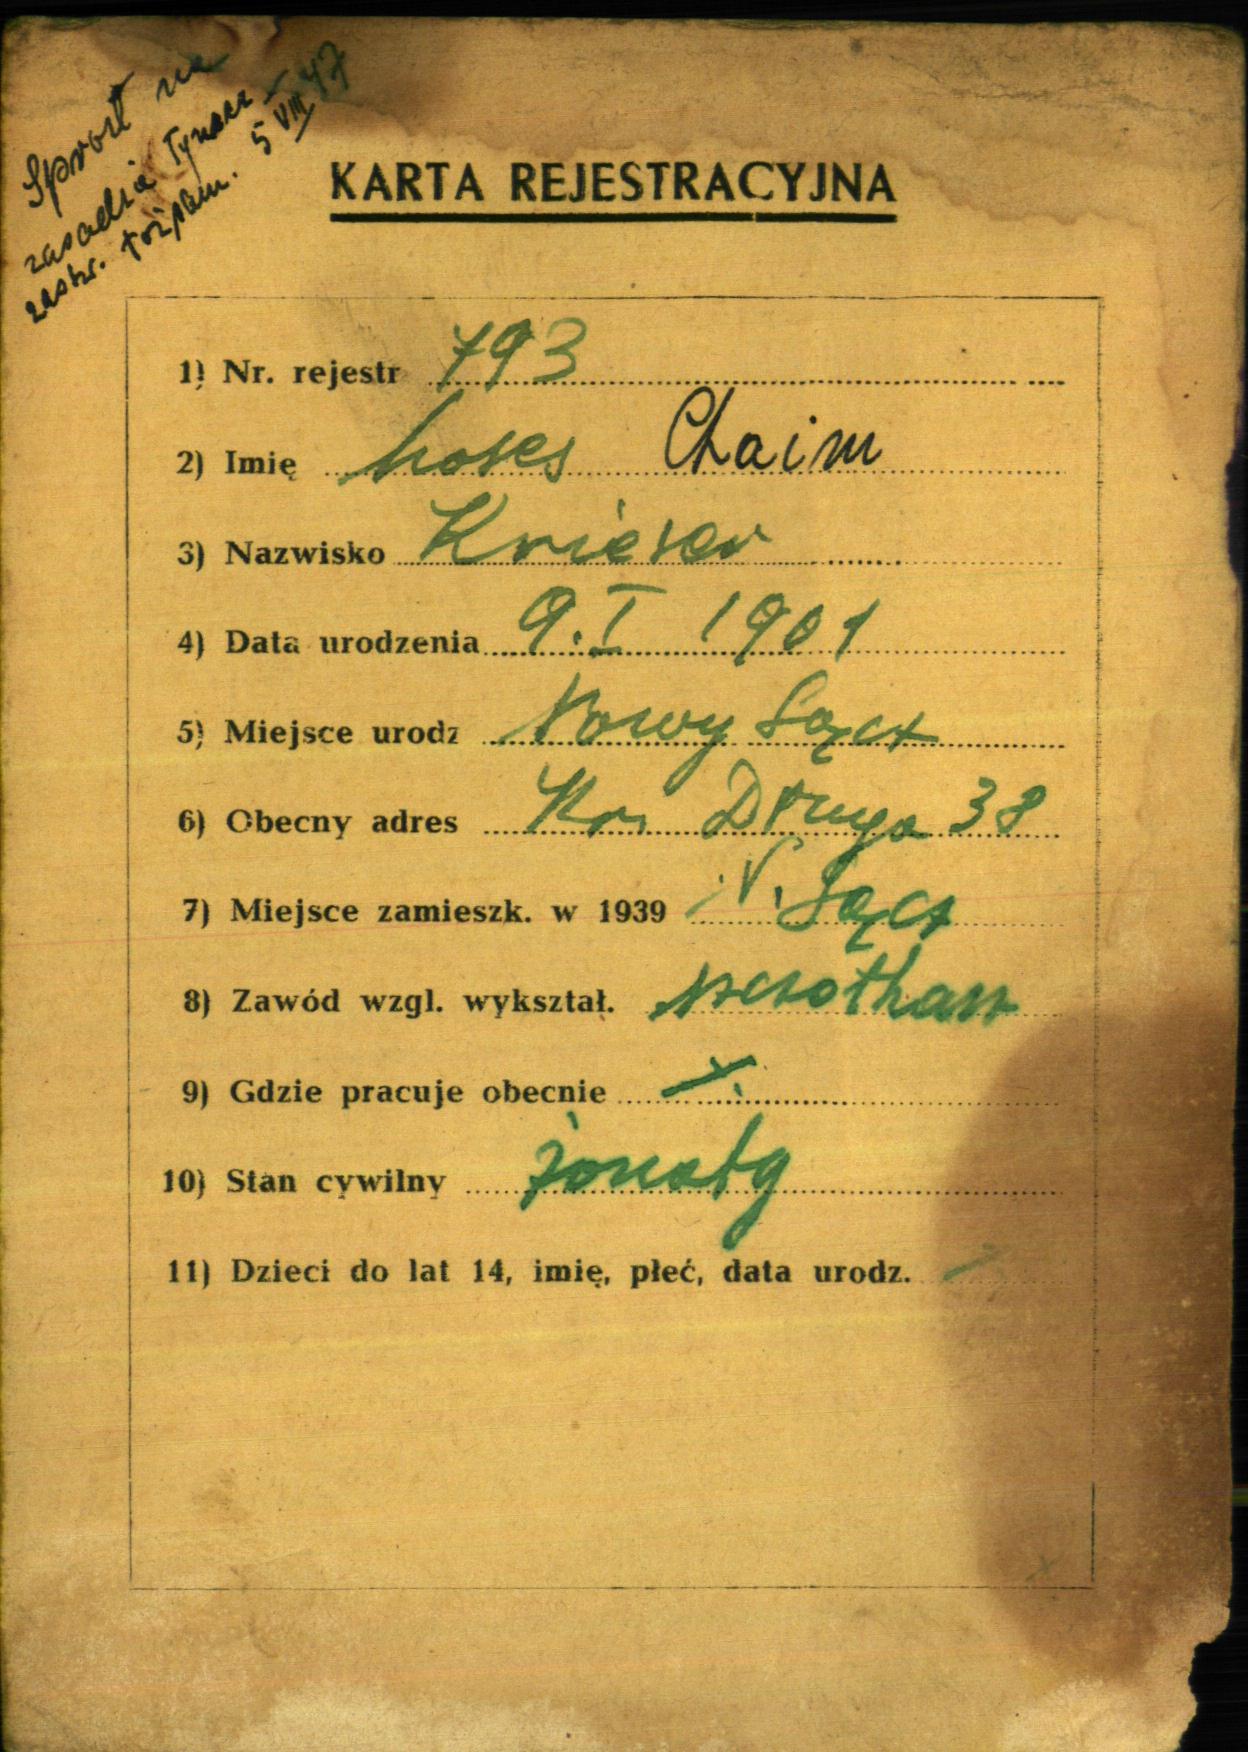 Sprost na
zasadzie Tymcz
zaśw. tożsam. 5 VIII 47
KARTA REJESTRACYJNA
1) Nr. rejestr 793
2) Imię Moses Chaim
3) Nazwisko Krieser
4) Data urodzenia 9. I 1901
5) Miejsce urodz Nowy Sącz
6) Obecny adres Kr. Długa 38
7) Miejsce zamieszk. w 1939 N. Sącz
8) Zawód wzgl. wykształ.
9) Gdzie pracuje obecnie
10) Stan cywilny żonaty
11) Dzieci do lat 14, imię, płeć, data urodz. -